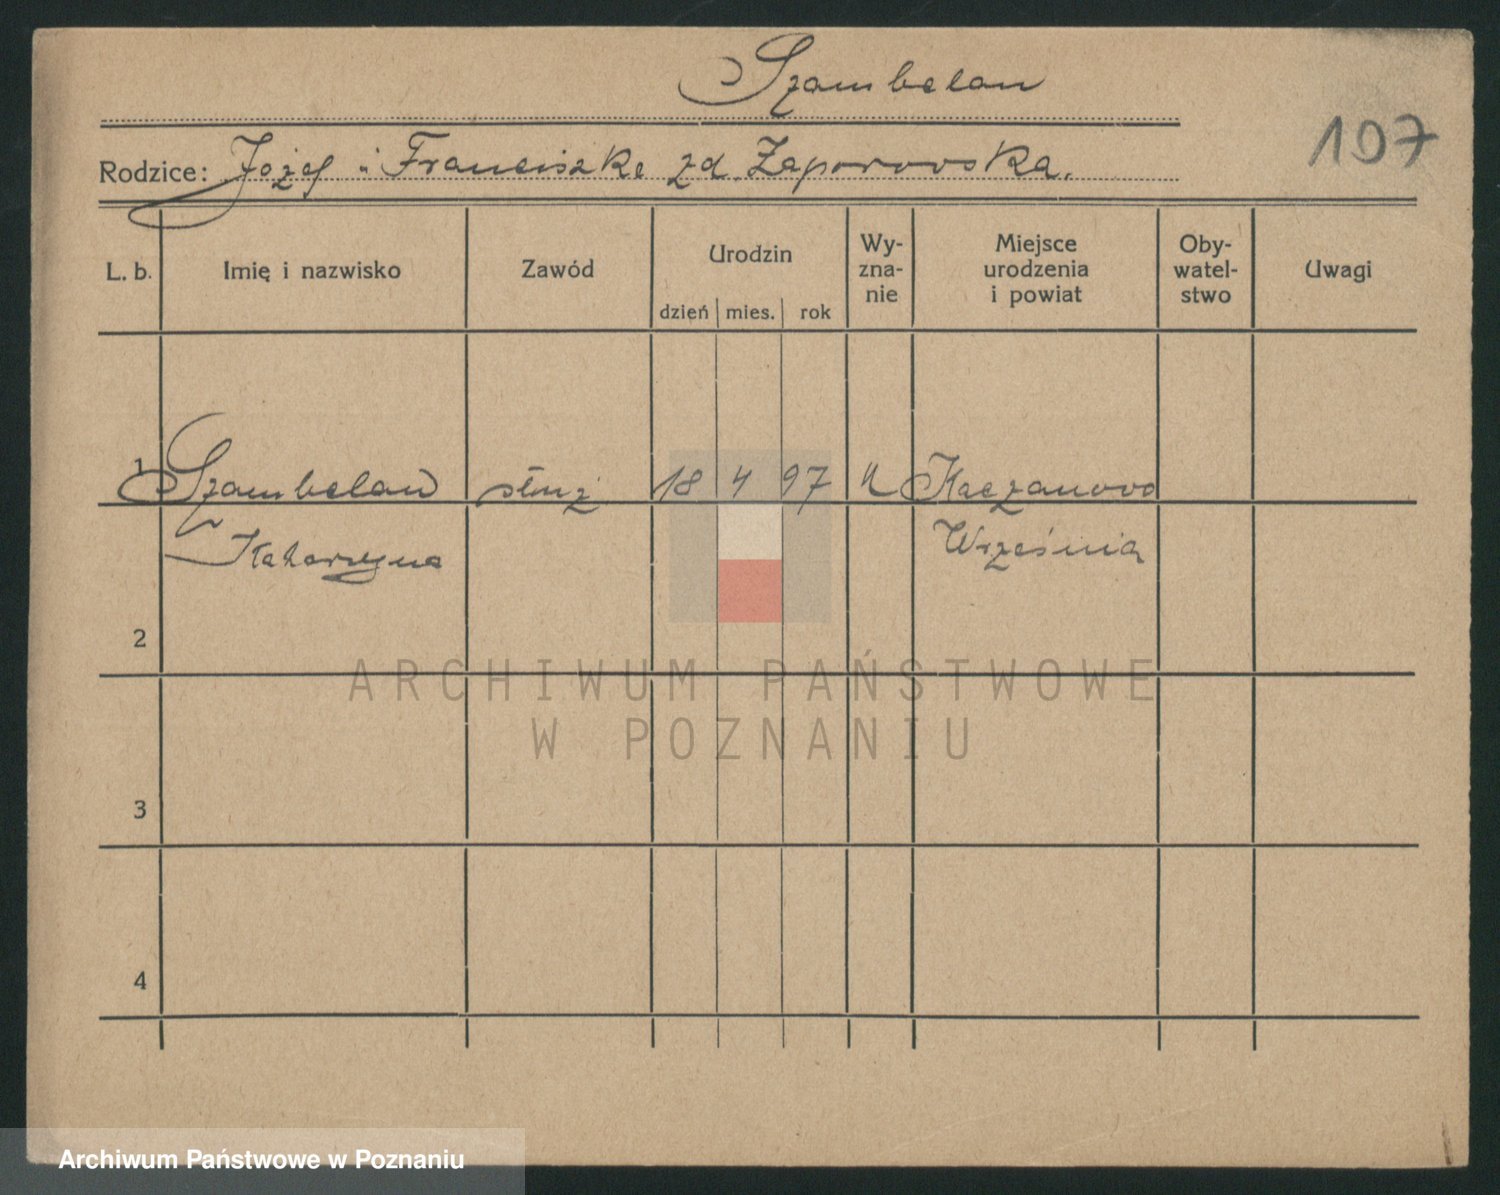 Szambelan
197
Rodzice: Józef i Franciszka zd. Zaporowska.
L. b.
Imię i nazwisko
Zawód
Urodzin
dzień mies. rok
Wy-
zna-
nie
Miejsce
urodzenia
i powiat
Oby-
watel-
stwo
Uwagi
1 Szambelan służ 18 4 97 Kaczanowo
Katarzyna Września
2
3
4
ARCHIWUM PAŃSTWOWE
W POZNANIU
Archiwum Państwowe w Poznaniu